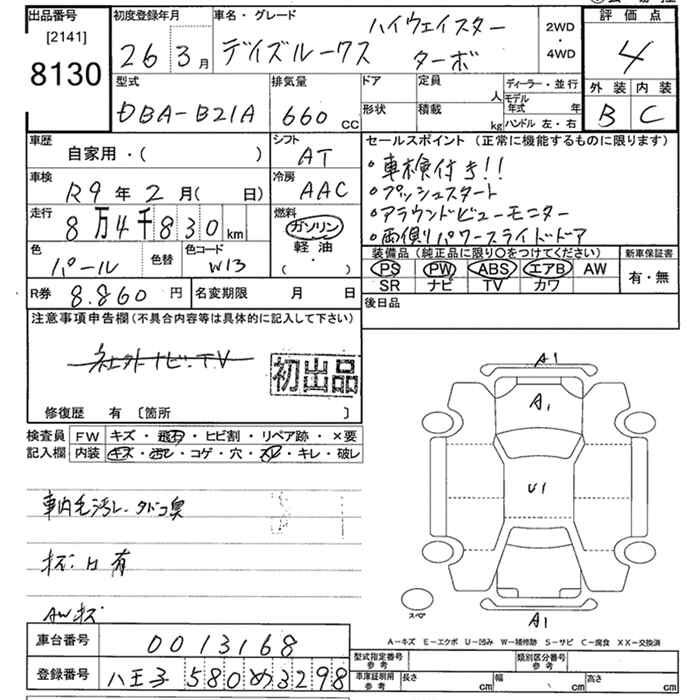 出品番号
[2141]
8130
初度登録年月
26 3月
車名・グレード
デイズルークス ハイウェイスター
ターボ
2WD
・
4WD
評価点
4
外装 内装
B C
型式
DBA-B21A
排気量
660 CC
ドア
形状
定員 人
積載 kg
ディーラー・並行
モデル年式 年
ハンドル 左・右
車歴
自家用・( )
シフト
AT
車検
R9年2月( 日)
冷房
AAC
走行
8万4千830km
燃料
ガソリン
軽油
( ・ )
色
パール
色替
色コード
W13
R券 8.860円
名変期限 月 日
セールスポイント(正常に機能するものに限ります)
・車検付き!!
・プッシュスタート
・アラウンドビューモニター
・両側パワースライドドア
装備品(純正品に限り○をつけてください)
PS PW ABS エアB AW
SR ナビ TV カワ
新車保証書
有・無
後日品
注意事項申告欄(不具合内容等は具体的に記入して下さい)
社外ナビ・TV
初出品
修復歴 有 〔箇所 〕
検査員記入欄
FW キズ・飛石・ヒビ割・リペア跡・×要
内装 キズ・汚レ・コゲ・穴・スレ・キレ・破レ
車内毛汚レ、タバコ臭
有
AWキズ
A1
A1
U1
A1
スペア
A-キズ E-エクボ U-凹み W-補修跡 S-サビ C-腐食 XX-交換済
車台番号 0013168
登録番号 八王子 580 め 3298
型式指定番号 参考
類別区分番号 参考
車庫証明用 参考 長さ cm 幅 cm 高さ cm